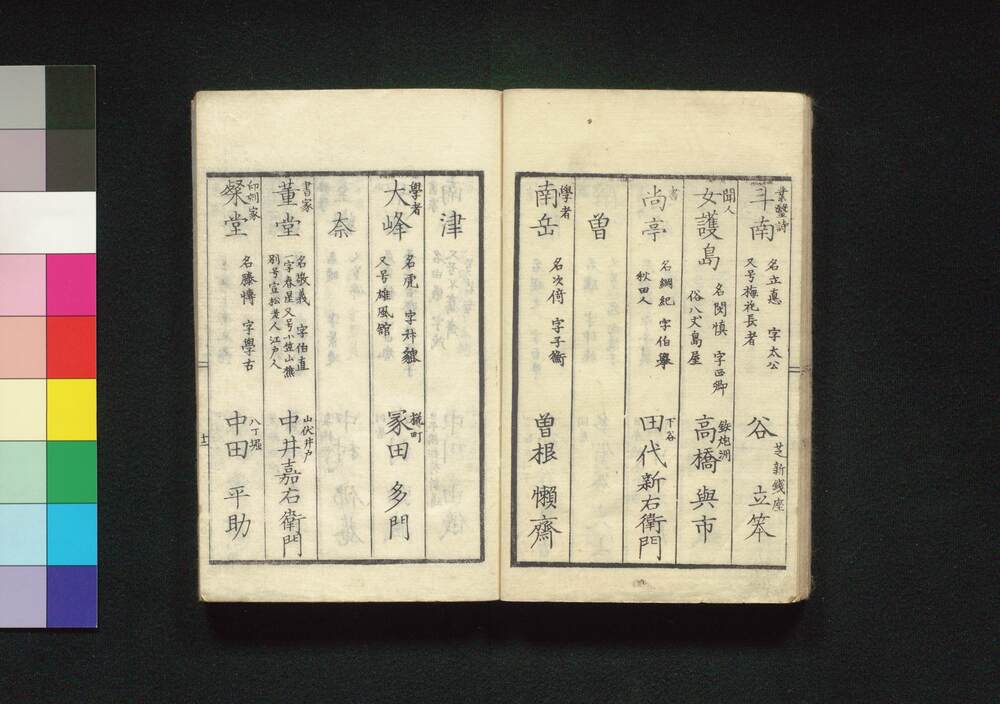 業醫詩
斗南
名立悳 字太公
又号梅花長者
芝新銭座
谷 立笨
聞人
女護島
名関慎 字正卿
俗八丈島屋
鉄炮洲
高橋 與市
書
尚亭
名綱紀 字伯舉
秋田人
下谷
田代新右衛門
曽
學者
南岳
名次倚 字子衡
曽根 懶齋
津
學者
大峰
名虎 字叔貔
又号雄風館
糀町
冢田 多門
奈
書家
董堂
名敬義 字伯直
一字春星又号小笠山樵
別号宣松老人江戸人
山伏井戸
中井嘉右衛門
印刻家
粲堂
名騰 字學古
八丁堀
中田 平助
十二